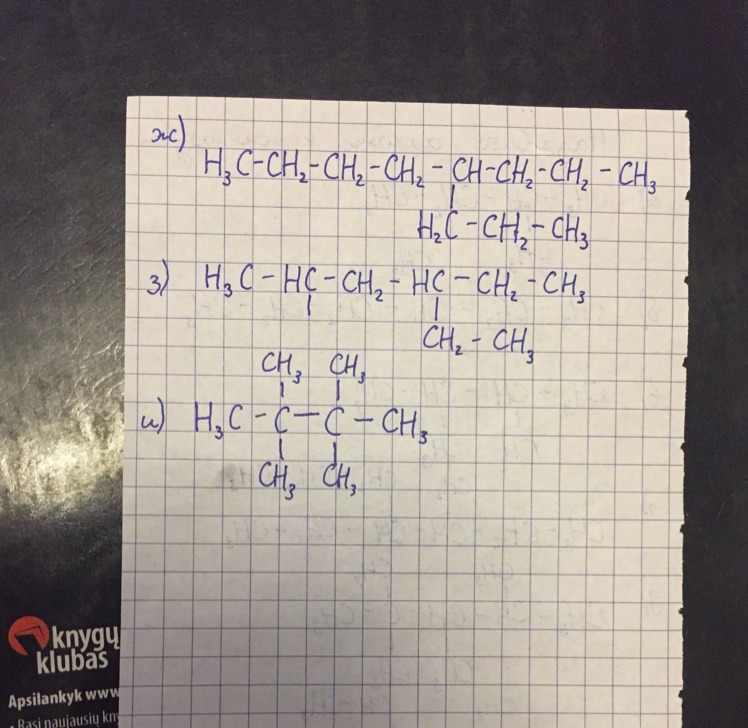 ж) H₃C-CH₂-CH₂-CH₂-CH-CH₂-CH₂-CH₃
H₂C-CH₂-CH₃
з) H₃C-HC-CH₂-HC-CH₂-CH₃
CH₂-CH₃
CH₃ CH₃
и) H₃C-C-C-CH₃
CH₃ CH₃
knygų
klubas
Apsilankyk www
- Rasi naujausių